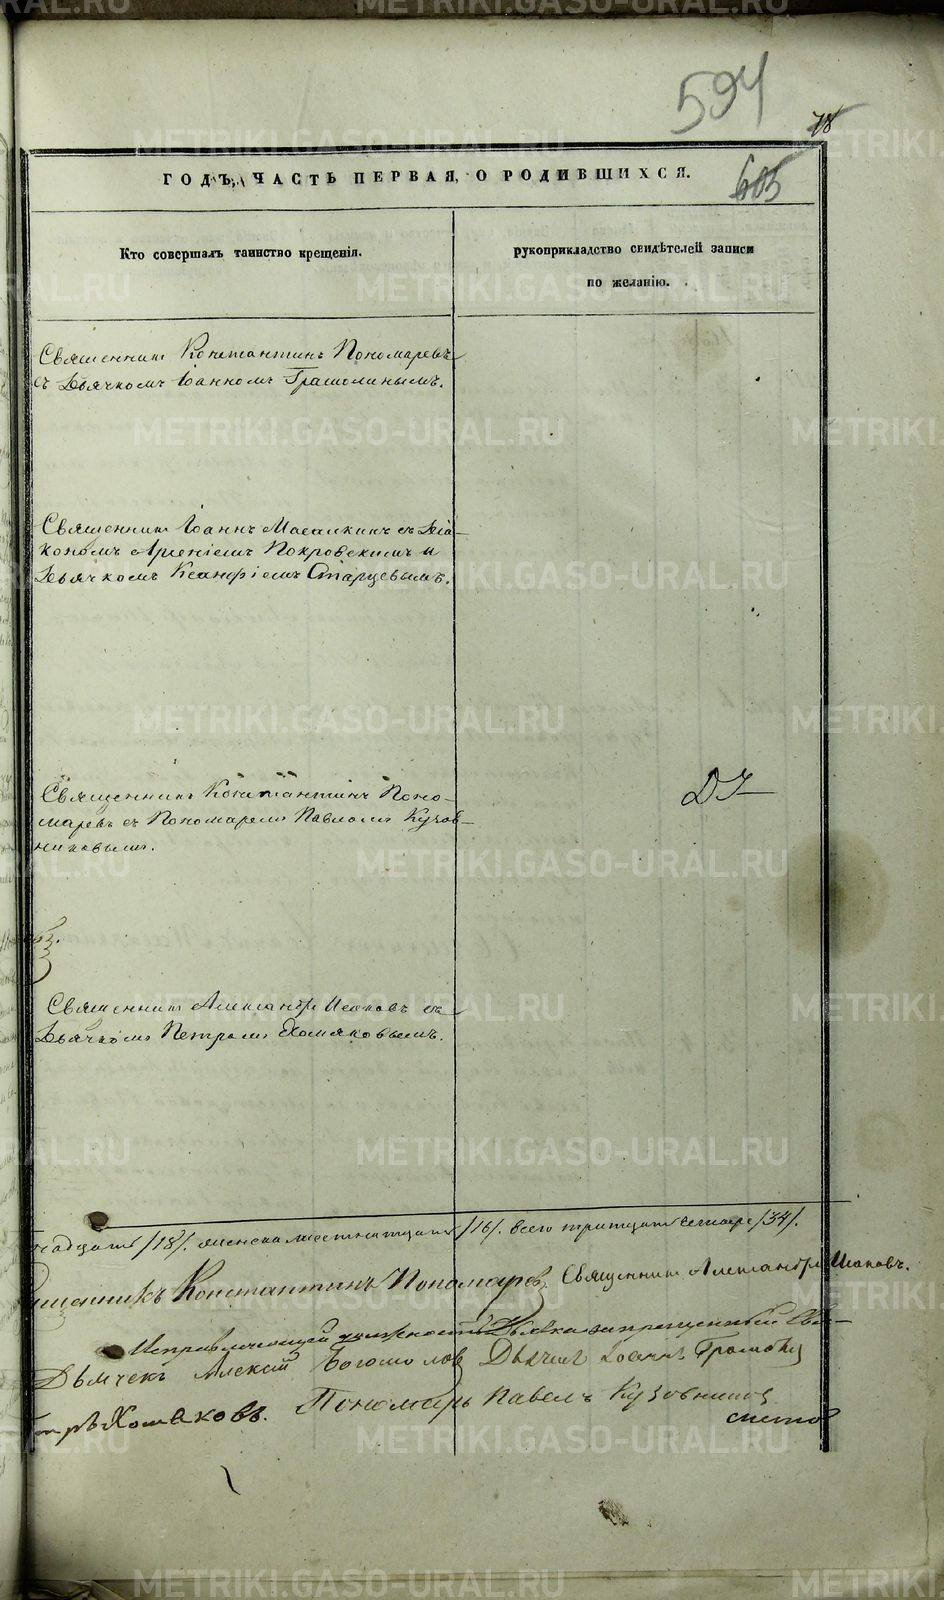 594
78
605
ГОДЪ, ЧАСТЬ ПЕРВАЯ, О РОДИВШИХСЯ.
Кто совершалъ таинство крещенія.
рукоприкладство свидѣтелей записи
по желанію.
Священникъ Константинъ Пономаревъ
съ Дьячкомъ Іоанномъ
Священникъ Іоаннъ Масалкинъ съ Діа-
кономъ Арсеніемъ Покровскимъ и
Дьячкомъ Ксанфіемъ Старцевымъ.
Священникъ Константинъ Поно-
маревъ съ Пономаремъ Павломъ Кузов-
никовымъ.
Священникъ Александръ Исаковъ съ
Дьячкомъ Петромъ Хомяковымъ.
/18/. женска шестнатцать /16/. всего тритцать четыре /34/.
Константинъ Пономаревъ Священникъ Александръ Исаковъ.
Исправляющій должность Дьячка запрещенный Свя-
Дьячекъ Алексій Богомоловъ Дьячекъ Іоаннъ
Хомяковъ. Пономарь Павелъ Кузовниковъ
METRIKI.GASO-URAL.RU